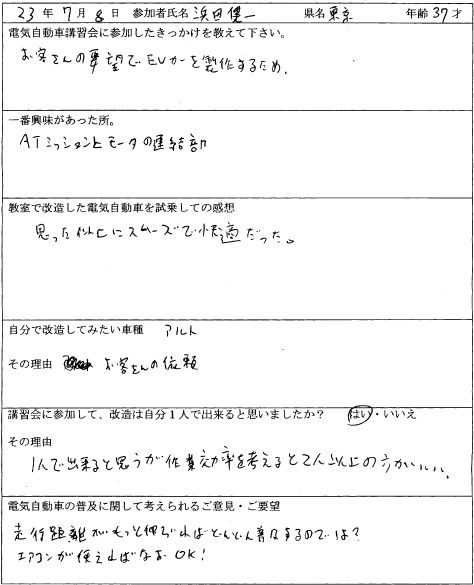 23年 7月 8日 参加者氏名 浜田健一 県名 東京 年齢 37才
電気自動車講習会に参加したきっかけを教えて下さい。
お客さんの要望でEVカーを製作するため.
一番興味があった所。
ATミッションとモータの連結部
教室で改造した電気自動車を試乗しての感想
思った以上にスムーズで快適だった。
自分で改造してみたい車種 アルト
その理由 お客さんの依頼
講習会に参加して、改造は自分1人で出来ると思いましたか? はい・いいえ
その理由
1人で出来ると思うが作業効率を考えると2人以上の方がいい。
電気自動車の普及に関して考えられるご意見・ご要望
走行距離がもっと伸びればどんどん普及するのでは?
エアコンが使えればなおOK!